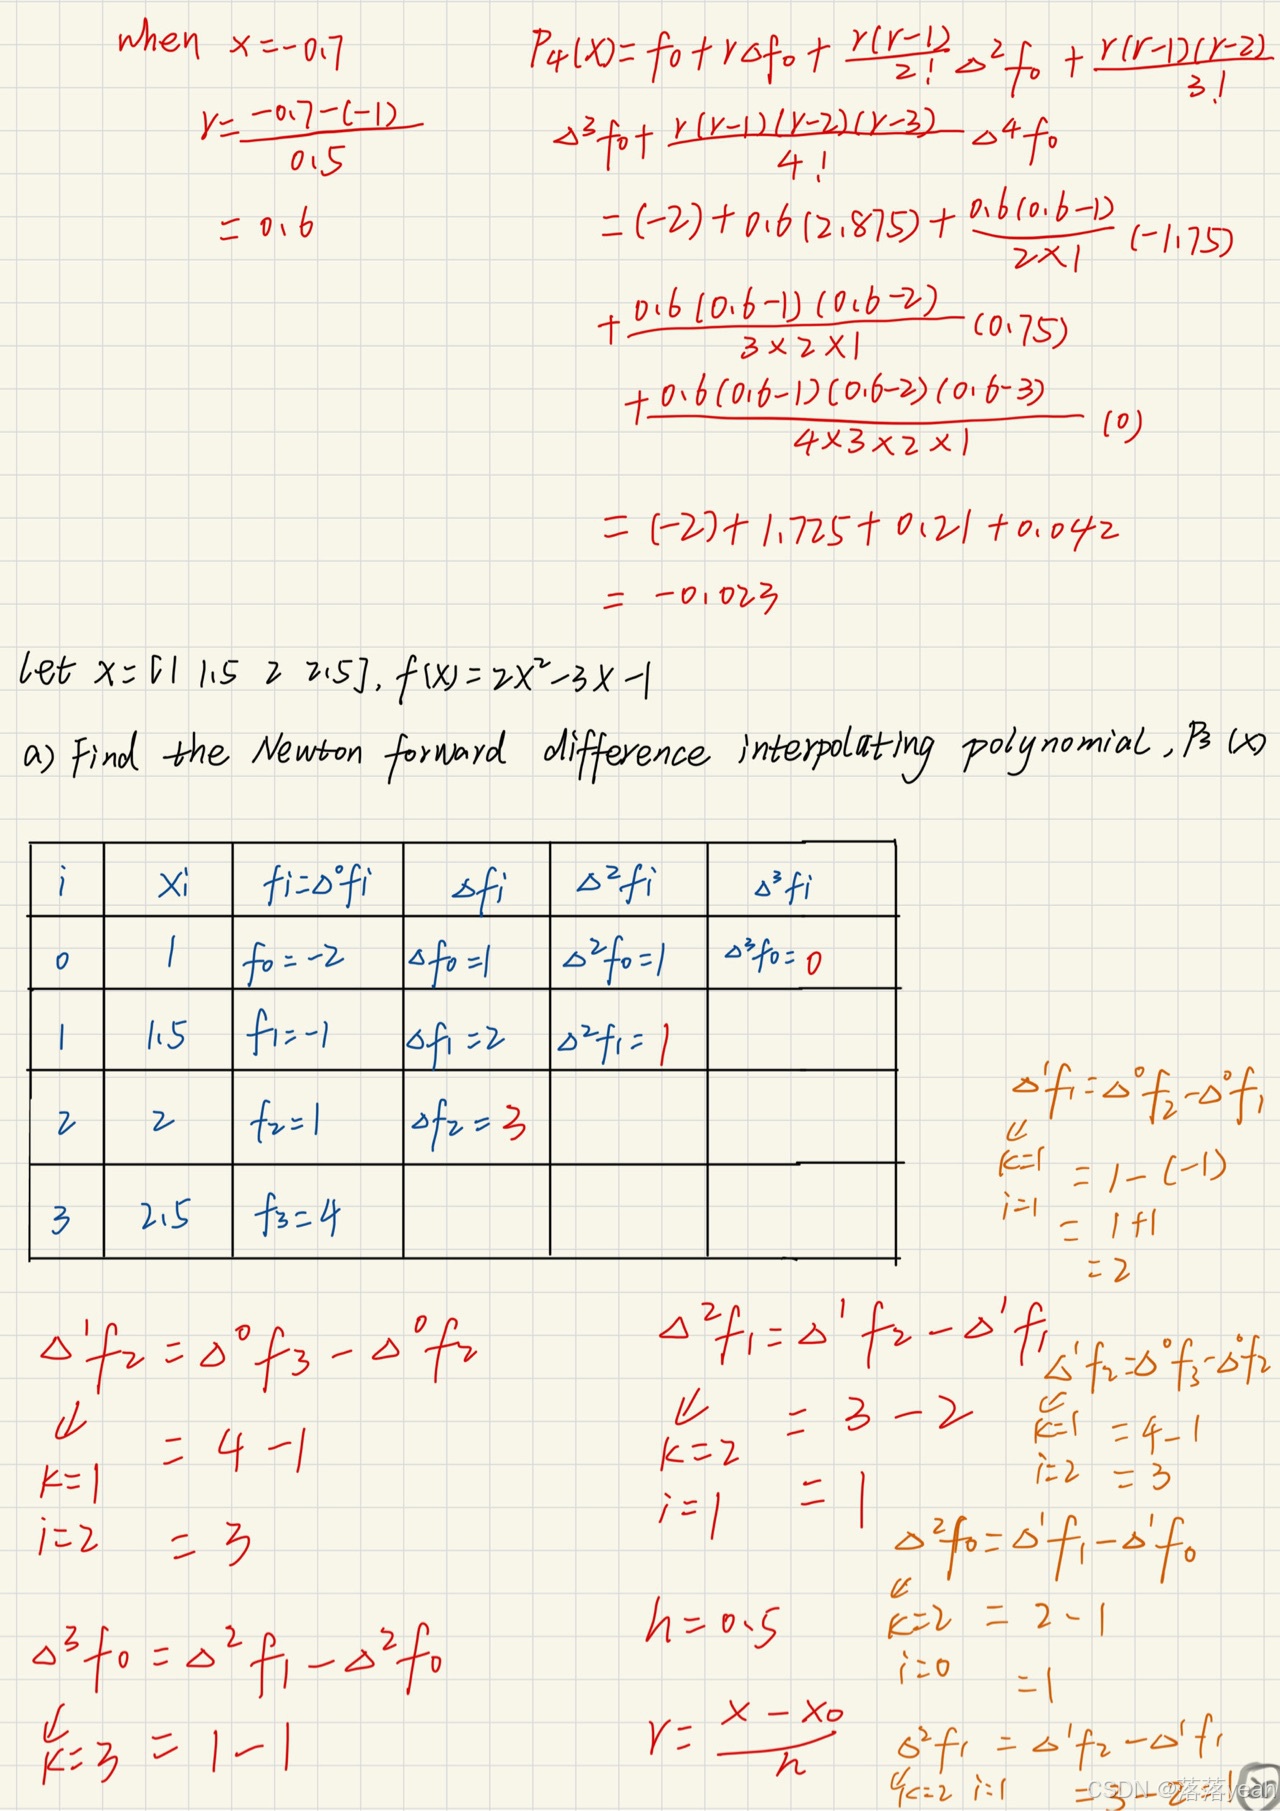 when x=-0.7
r=(-0.7-(-1))/0.5
=0.6
P4(x)=f0+rΔf0+r(r-1)/2! Δ²f0+r(r-1)(r-2)/3!
Δ³f0+r(r-1)(r-2)(r-3)/4! Δ⁴f0
=(-2)+0.6(2.875)+0.6(0.6-1)/2×1 (-1.75)
+0.6(0.6-1)(0.6-2)/3×2×1 (0.75)
+0.6(0.6-1)(0.6-2)(0.6-3)/4×3×2×1 (0)
=(-2)+1.725+0.21+0.042
=-0.023
Let x=[1 1.5 2 2.5], f(x)=2x²-3x-1
a) Find the Newton forward difference interpolating polynomial, P3(x)
i xi fi=Δ⁰fi Δfi Δ²fi Δ³fi
0 1 f0=-2 Δf0=1 Δ²f0=1 Δ³f0=0
1 1.5 f1=-1 Δf1=2 Δ²f1=1
2 2 f2=1 Δf2=3
3 2.5 f3=4
Δ¹f1=Δ⁰f2-Δ⁰f1
↙
k=1 =1-(-1)
i=1 =1+1
=2
Δ¹f2=Δ⁰f3-Δ⁰f2
↙ =4-1
k=1
i=2 =3
Δ²f1=Δ¹f2-Δ¹f1
↙ =3-2
k=2
i=1 =1
Δ¹f2=Δ⁰f3-Δ⁰f2
↙
k=1 =4-1
i=2 =3
Δ²f0=Δ¹f1-Δ¹f0
↙
k=2 =2-1
i=0 =1
Δ³f0=Δ²f1-Δ²f0
↙
k=3 =1-1
h=0.5
r=(x-x0)/h
Δ²f1=Δ¹f2-Δ¹f1
↙k=2 i=1 =3-2=1
CSDN @落落yean